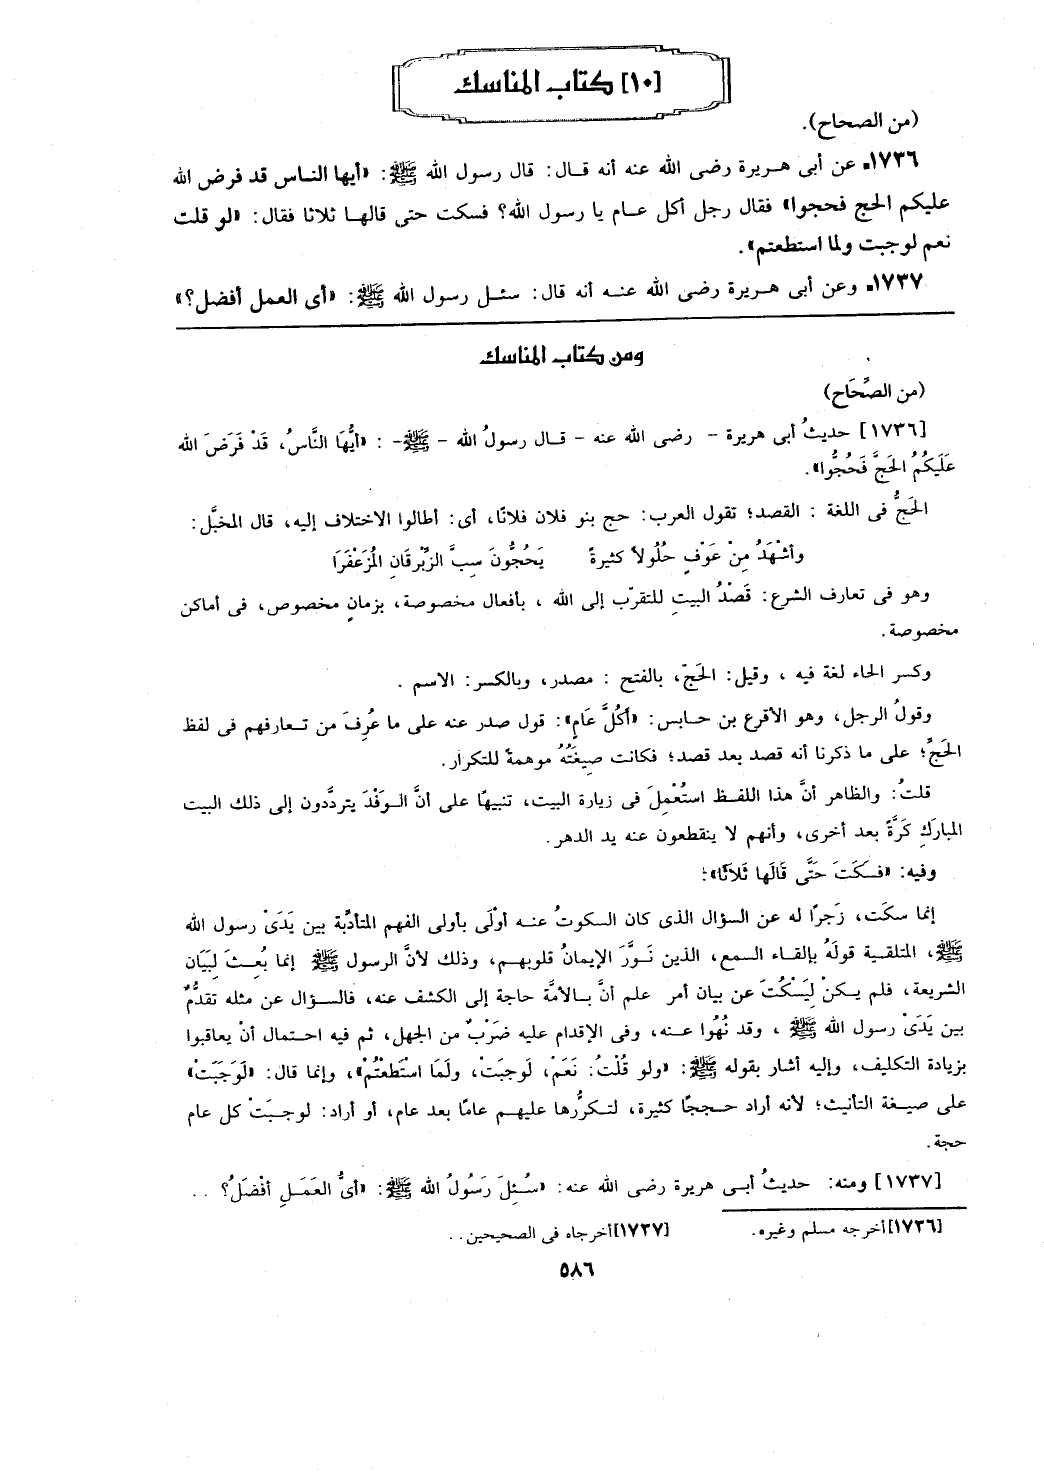 [١٠] كتاب المناسك
(من الصحاح).
١٧٣٦ـ عن أبى هريرة رضى الله عنه أنه قال: قال رسول الله ﷺ: «أيها الناس قد فرض الله
عليكم الحج فحجوا» فقال رجل أكل عام يا رسول الله؟ فسكت حتى قالها ثلاثا فقال: «لو قلت
نعم لوجبت ولما استطعتم».
١٧٣٧ـ وعن أبى هريرة رضى الله عنه أنه قال: سئل رسول الله ﷺ: «أى العمل أفضل؟»
ومن كتاب المناسك
(من الصِّحَاح)
[١٧٣٦] حديثُ أبى هريرة - رضى الله عنه - قال رسولُ الله - ﷺ- : «أيُّهَا النَّاسُ، قَدْ فَرَضَ الله
عَلَيكُمُ الحَجَّ فَحُجُّوا».
الحَجُّ فى اللغة : القصد؛ تقول العرب: حج بنو فلان فلانًا، أى: أطالوا الاختلاف إليه، قال المخبَّل:
وأشْهَدُ مِنْ عَوْفٍ حُلُولاً كثيرةً يَحُجُّونَ سِبَّ الزِّبْرقَانِ المُزَعْفَرَا
وهو فى تعارف الشرع: قَصْدُ البيتِ للتقرّب إلى الله ، بأفعال مخصوصة، بزمانٍ مخصوص، فى أماكن
مخصوصة.
وكسر الحاء لغة فيه ، وقيل: الحَجّ، بالفتح : مصدر، وبالكسر: الاسم .
وقولُ الرجل، وهو الأقرع بن حابس: «أكُلَّ عَامٍ»: قول صدر عنه على ما عُرِفَ من تعارفهم فى لفظ
الحَجِّ؛ على ما ذكرنا أنه قصد بعد قصد؛ فكانت صِيغَتُهُ موهمةً للتكرار.
قلتُ: والظاهر أنَّ هذا اللفظ استُعْمِلَ فى زيارة البيت، تنبيهًا على أنَّ الوَفْدَ يتردَّدون إلى ذلك البيت
المبارَكِ كَرَّةً بعد أخرى، وأنهم لا ينقطعون عنه يد الدهر.
وفيه: «فسَكَتَ حَتَّى قَالَها ثَلاَثًا»؛
إنما سكت، زَجرًا له عن السؤال الذى كان السكوتُ عنه أوْلَى بأولى الفهم المتأدِّبة بين يَدَىْ رسول الله
ﷺ، المتلقية قولَهُ بإلقاء السمع، الذين نَوَّرَ الإيمانُ قلوبهم، وذلك لأنَّ الرسول ﷺ إنما بُعِثَ لِبَيَان
الشريعة، فلم يكنْ لِيَسْكُتَ عن بيان أمر علم أنَّ بالأمَّة حاجة إلى الكشف عنه، فالسؤال عن مثله تقدُّمٌ
بين يَدَىْ رسول الله ﷺ ، وقد نُهُوا عنه، وفى الإقدام عليه ضَرْبٌ من الجهل، ثم فيه احتمال أنْ يعاقبوا
بزيادة التكليف، وإليه أشار بقوله ﷺ: «ولو قُلْتُ: نَعَمْ، لَوجبَتْ، ولَمَا اسْتَطعْتُمْ»، وإنما قال: «لَوَجَبَتْ»
على صيغة التأنيث؛ لأنه أراد حججًا كثيرة، لتكرُّرها عليهم عامًا بعد عام، أو أراد: لوجبَتْ كل عام
حجة.
[١٧٣٧] ومنه: حديثُ أبى هريرة رضى الله عنه: «سُئِلَ رَسُولُ الله ﷺ: «أىُّ العَمَلِ أفْضَلُ؟ . .
[١٧٣٦]أخرجه مسلم وغيره. [١٧٣٧]أخرجاه فى الصحيحين. .
٥٨٦